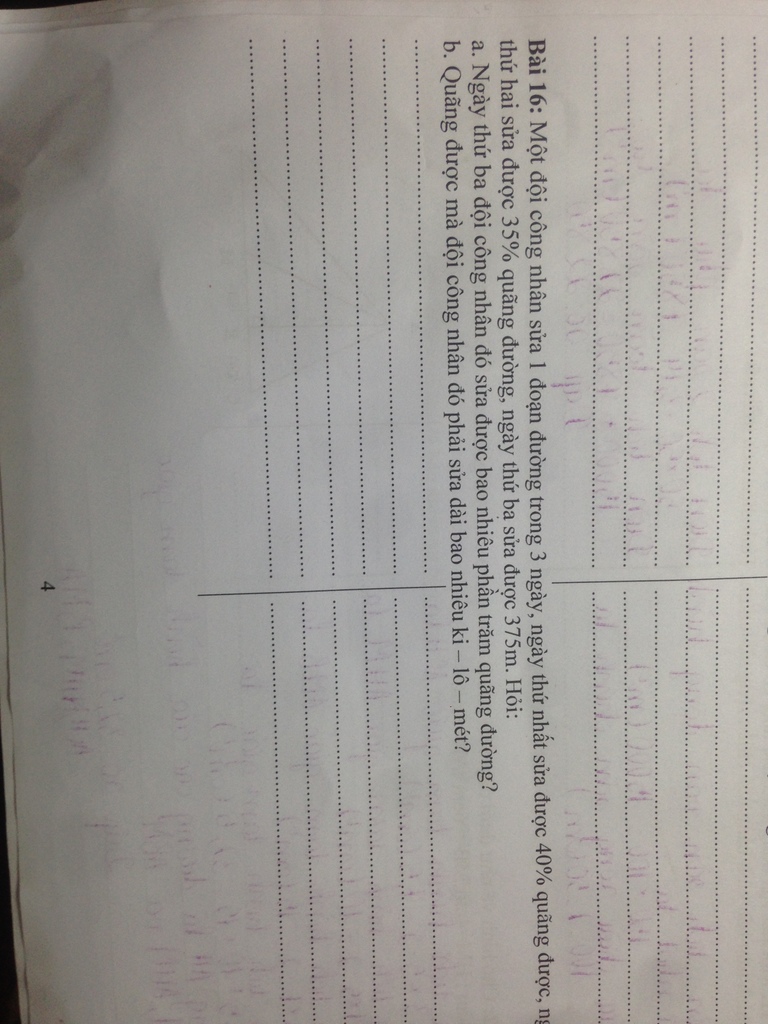 Bài 16: Một đội công nhân sửa 1 đoạn đường trong 3 ngày, ngày thứ nhất sửa được 40% quãng được,
thứ hai sửa được 35% quãng đường, ngày thứ ba sửa được 375m. Hỏi:
a. Ngày thứ ba đội công nhân đó sửa được bao nhiêu phần trăm quãng đường?
b. Quãng được mà đội công nhân đó phải sửa dài bao nhiêu ki – lô – mét?
4